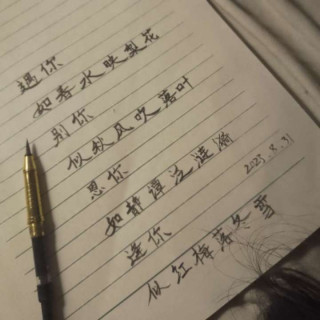 遇你
如春水映梨花
别你
似秋风吹落叶
思你
如静潭泛涟漪
送你
似红梅落冬雪
2023.8.31